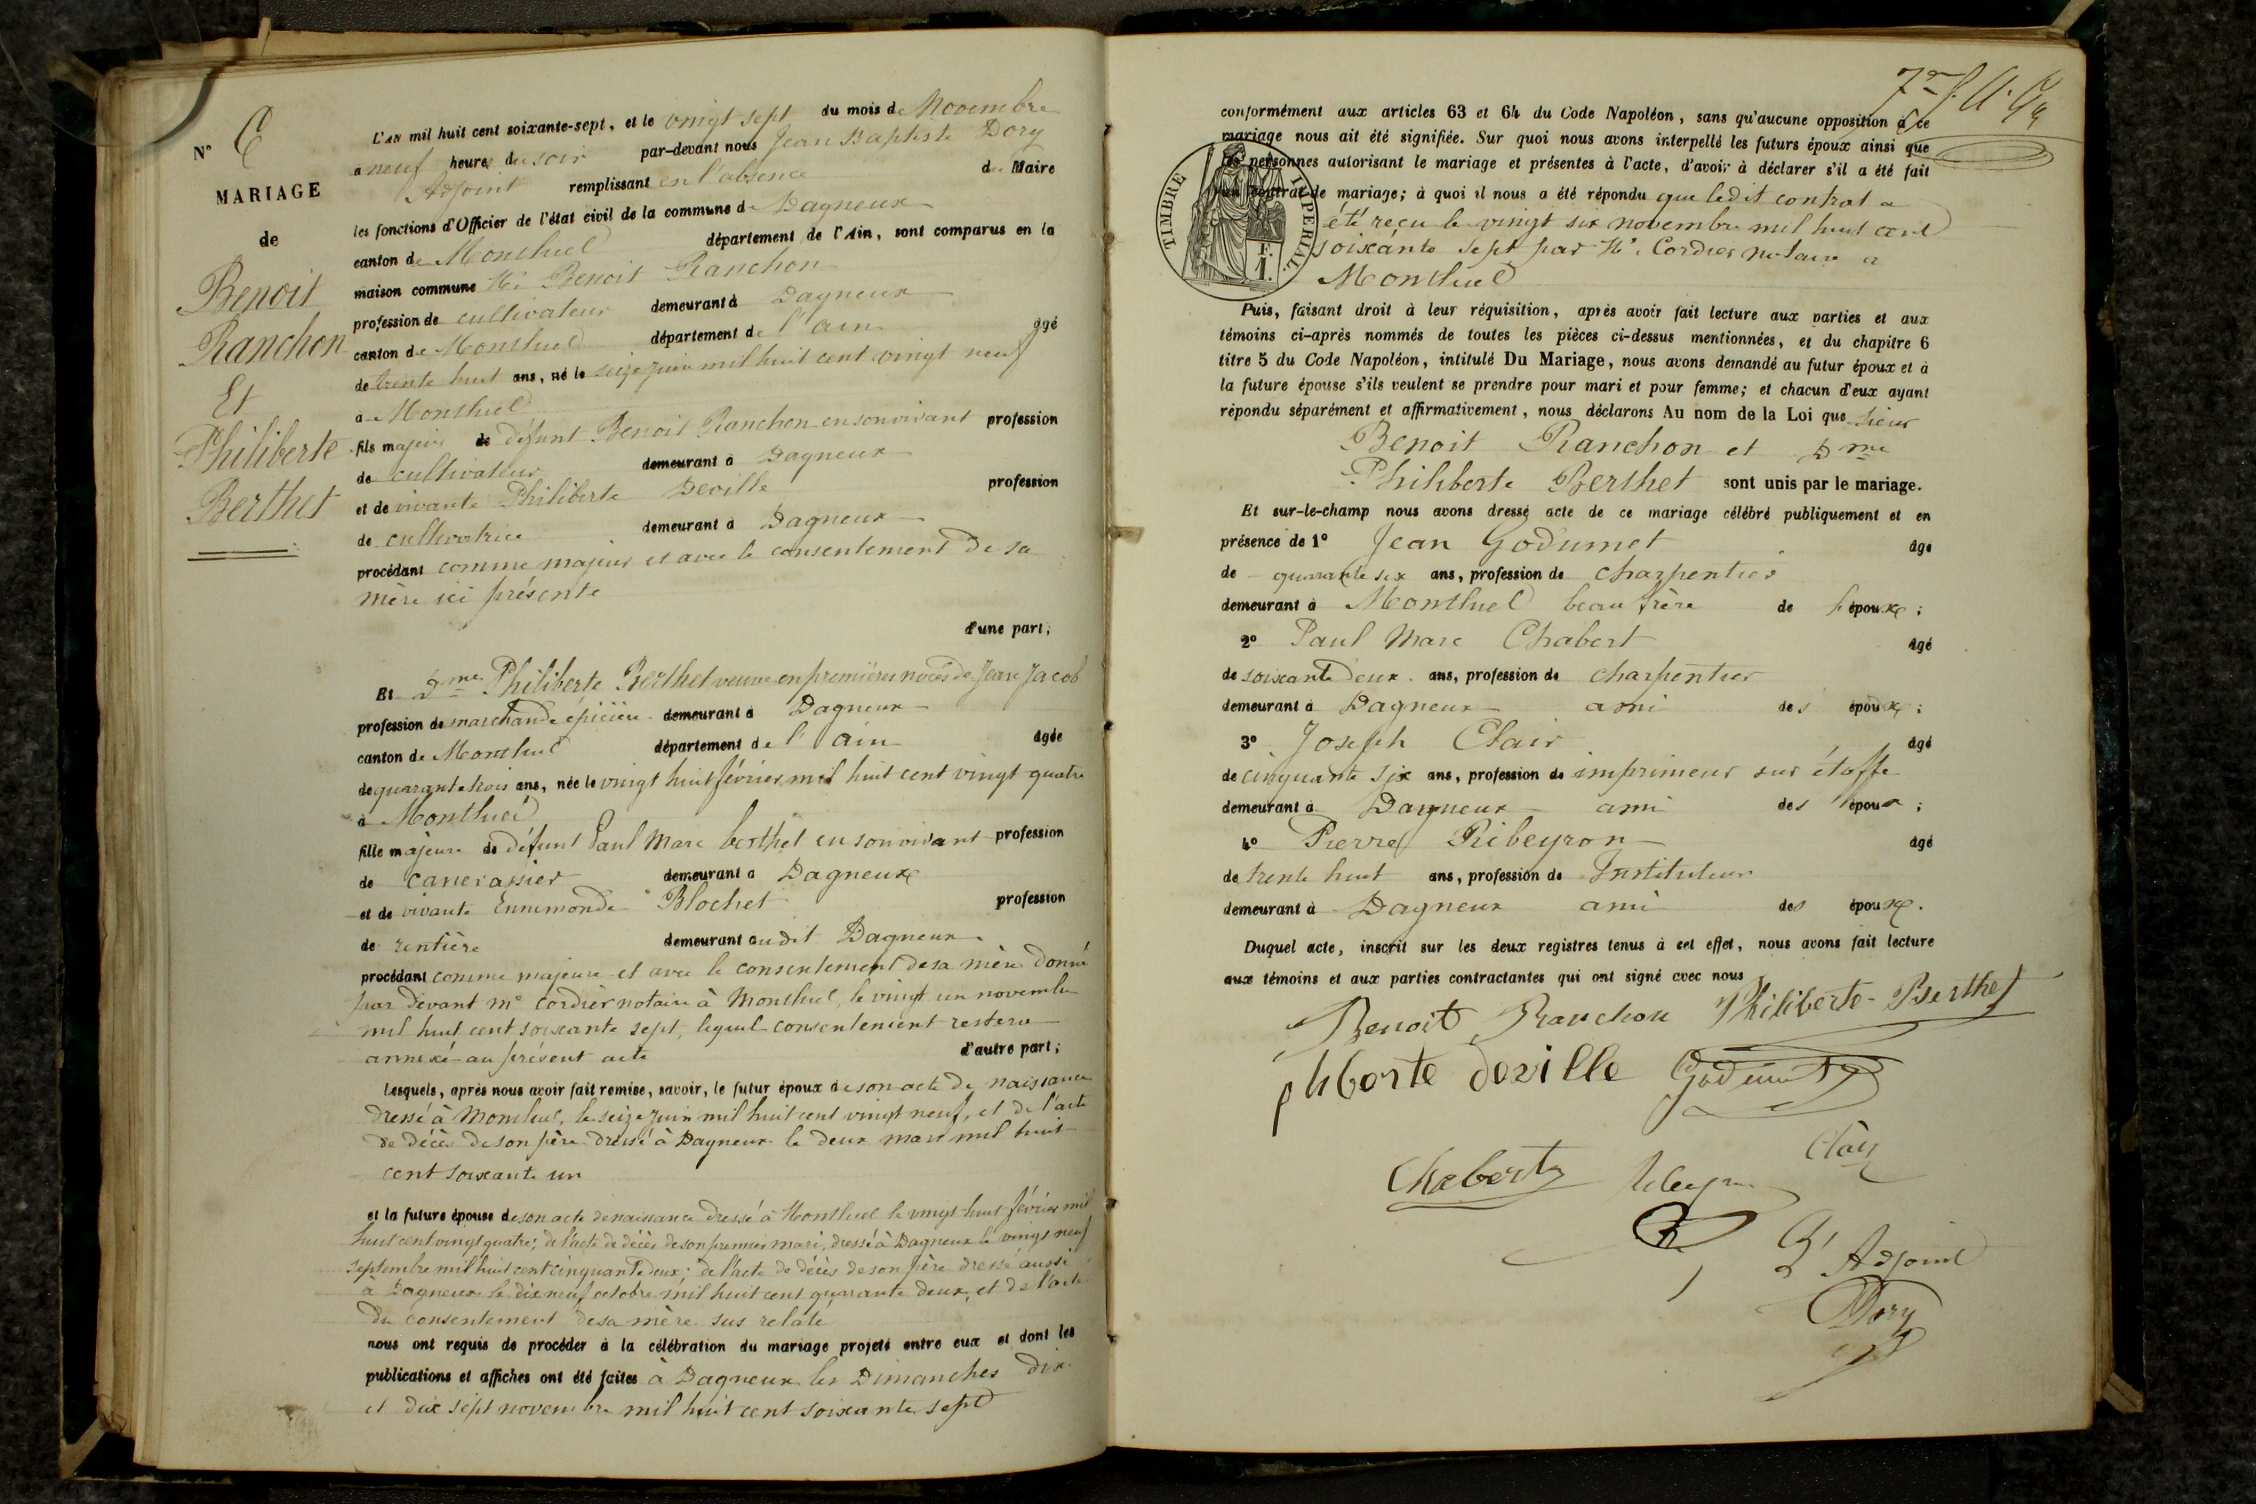 N° 6
MARIAGE
de
Benoit
Ranchon
Et
Philiberte
Berthet
L'an mil huit cent soixante-sept, et le vingt sept du mois de Novembre
a neuf heures du soir par-devant nous Jean Baptiste Dory
Adjoint remplissant en l'absence du Maire
les fonctions d'Officier de l'état civil de la commune de Dagneux
canton de Montluel département de l'Ain, sont comparus en la
maison commune Mr Benoit Ranchon
profession de cultivateur demeurant à Dagneux
canton de Montluel département de l'ain âgé
de trente huit ans, né le seize juin mil huit cent vingt neuf
a Montluel
fils majeur de défunt Benoit Ranchon en son vivant profession
de cultivateur demeurant à Dagneux
et de vivante Philiberte Deville profession
de cultivatrice demeurant à Dagneux
procédant comme majeur et avec le consentement de sa
mère ici présente
d'une part;
Et Dme Philiberte Berthet veuve en premières noces de Jean Jacob
profession de marchande épicière demeurant à Dagneux
canton de Montluel département de l'ain âgée
de quarante trois ans, née le vingt huit février mil huit cent vingt quatre
à Montluel
fille majeure de défunt Paul Marc berthet en son vivant profession
de canevassier demeurant a Dagneux
et de vivante Ennemonde Blochet profession
de rentière demeurant audit Dagneux
procédant comme majeure et avec le consentement de sa mère donné
par devant me cordier notaire à Montluel, le vingt un novembre
mil huit cent soixante sept, lequel consentement restera
annexé au présent acte d'autre part;
Lesquels, après nous avoir fait remise, savoir, le futur époux de son acte de naissance
dressé à Montluel, le seize juin mil huit cent vingt neuf, et de l'acte
de décès de son père dressé à Dagneux le deux mars mil huit
cent soixante un
et la future épouse de son acte de naissance dressé à Montluel le vingt huit février mil
huit cent vingt quatre; de l'acte de décès de son premier mari, dressé à Dagneux le vingt neuf
septembre mil huit cent cinquante deux; de l'acte de décès de son père dressé aussi
à Dagneux le dix neuf octobre mil huit cent quarante deux, et de l'acte
du consentement de sa mère sus relaté
nous ont requis de procéder à la célébration du mariage projeté entre eux et dont les
publications et affiches ont été faites à Dagneux les Dimanches dix
et dix sept novembre mil huit cent soixante sept
conformément aux articles 63 et 64 du Code Napoléon, sans qu'aucune opposition à ce
mariage nous ait été signifiée. Sur quoi nous avons interpellé les futurs époux ainsi que
les personnes autorisant le mariage et présentes à l'acte, d'avoir à déclarer s'il a été fait
un contrat de mariage; à quoi il nous a été répondu que ledit contrat a
été reçu le vingt six novembre mil huit cent
soixante sept par Me Cordier notaire a
Montluel
TIMBRE IMPERIAL.
F.
1.
Puis, faisant droit à leur réquisition, après avoir fait lecture aux parties et aux
témoins ci-après nommés de toutes les pièces ci-dessus mentionnées, et du chapitre 6
titre 5 du Code Napoléon, intitulé Du Mariage, nous avons demandé au futur époux et à
la future épouse s'ils veulent se prendre pour mari et pour femme; et chacun d'eux ayant
répondu séparément et affirmativement, nous déclarons Au nom de la Loi que sieur
Benoit Ranchon et Dme
Philiberte Berthet sont unis par le mariage.
Et sur-le-champ nous avons dressé acte de ce mariage célébré publiquement et en
présence de 1° Jean Godumet âgé
de quarante six ans, profession de charpentier
demeurant à Montluel beau frère de l'époux;
2° Paul Marc Chabert âgé
de soixante deux ans, profession de charpentier
demeurant à Dagneux ami des époux;
3° Joseph Clair âgé
de cinquante six ans, profession de imprimeur sur étoffe
demeurant à Dagneux ami des époux;
4° Pierre Ribeyron âgé
de trente huit ans, profession de Instituteur
demeurant à Dagneux ami des époux.
Duquel acte, inscrit sur les deux registres tenus à cet effet, nous avons fait lecture
aux témoins et aux parties contractantes qui ont signé avec nous
Benoit Ranchon Philiberte Berthet
phberte deville Godumet
Clair
Chabert Ribeyron
L'Adjoint
Dory